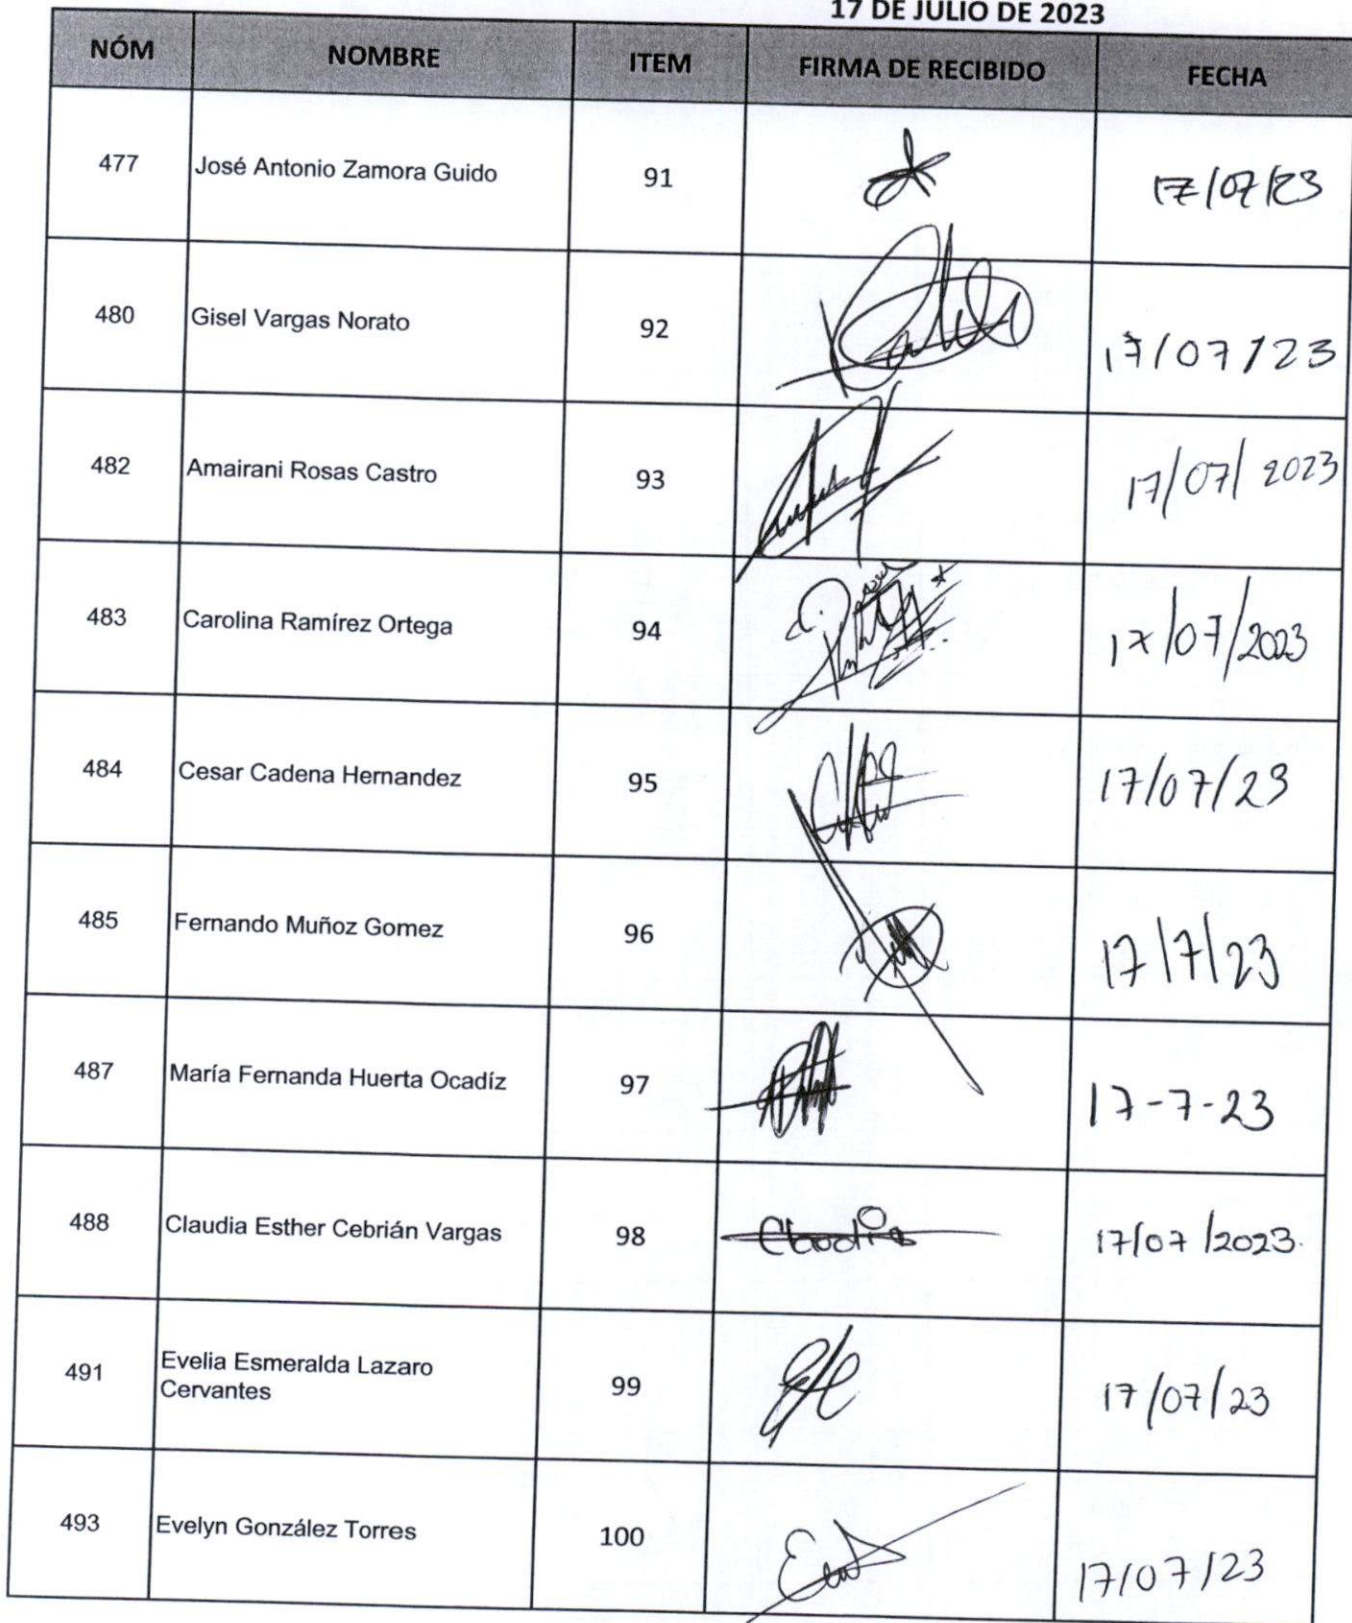 17 DE JULIO DE 2023
NÓM NOMBRE ITEM FIRMA DE RECIBIDO FECHA
477 José Antonio Zamora Guido 91 17/07/23
480 Gisel Vargas Norato 92 17/07/23
482 Amairani Rosas Castro 93 17/07/2023
483 Carolina Ramírez Ortega 94 17/07/2023
484 Cesar Cadena Hernandez 95 17/07/23
485 Fernando Muñoz Gomez 96 17/7/23
487 María Fernanda Huerta Ocadíz 97 17-7-23
488 Claudia Esther Cebrián Vargas 98 Claudia 17/07/2023.
491 Evelia Esmeralda Lazaro
Cervantes 99 17/07/23
493 Evelyn González Torres 100 17/07/23